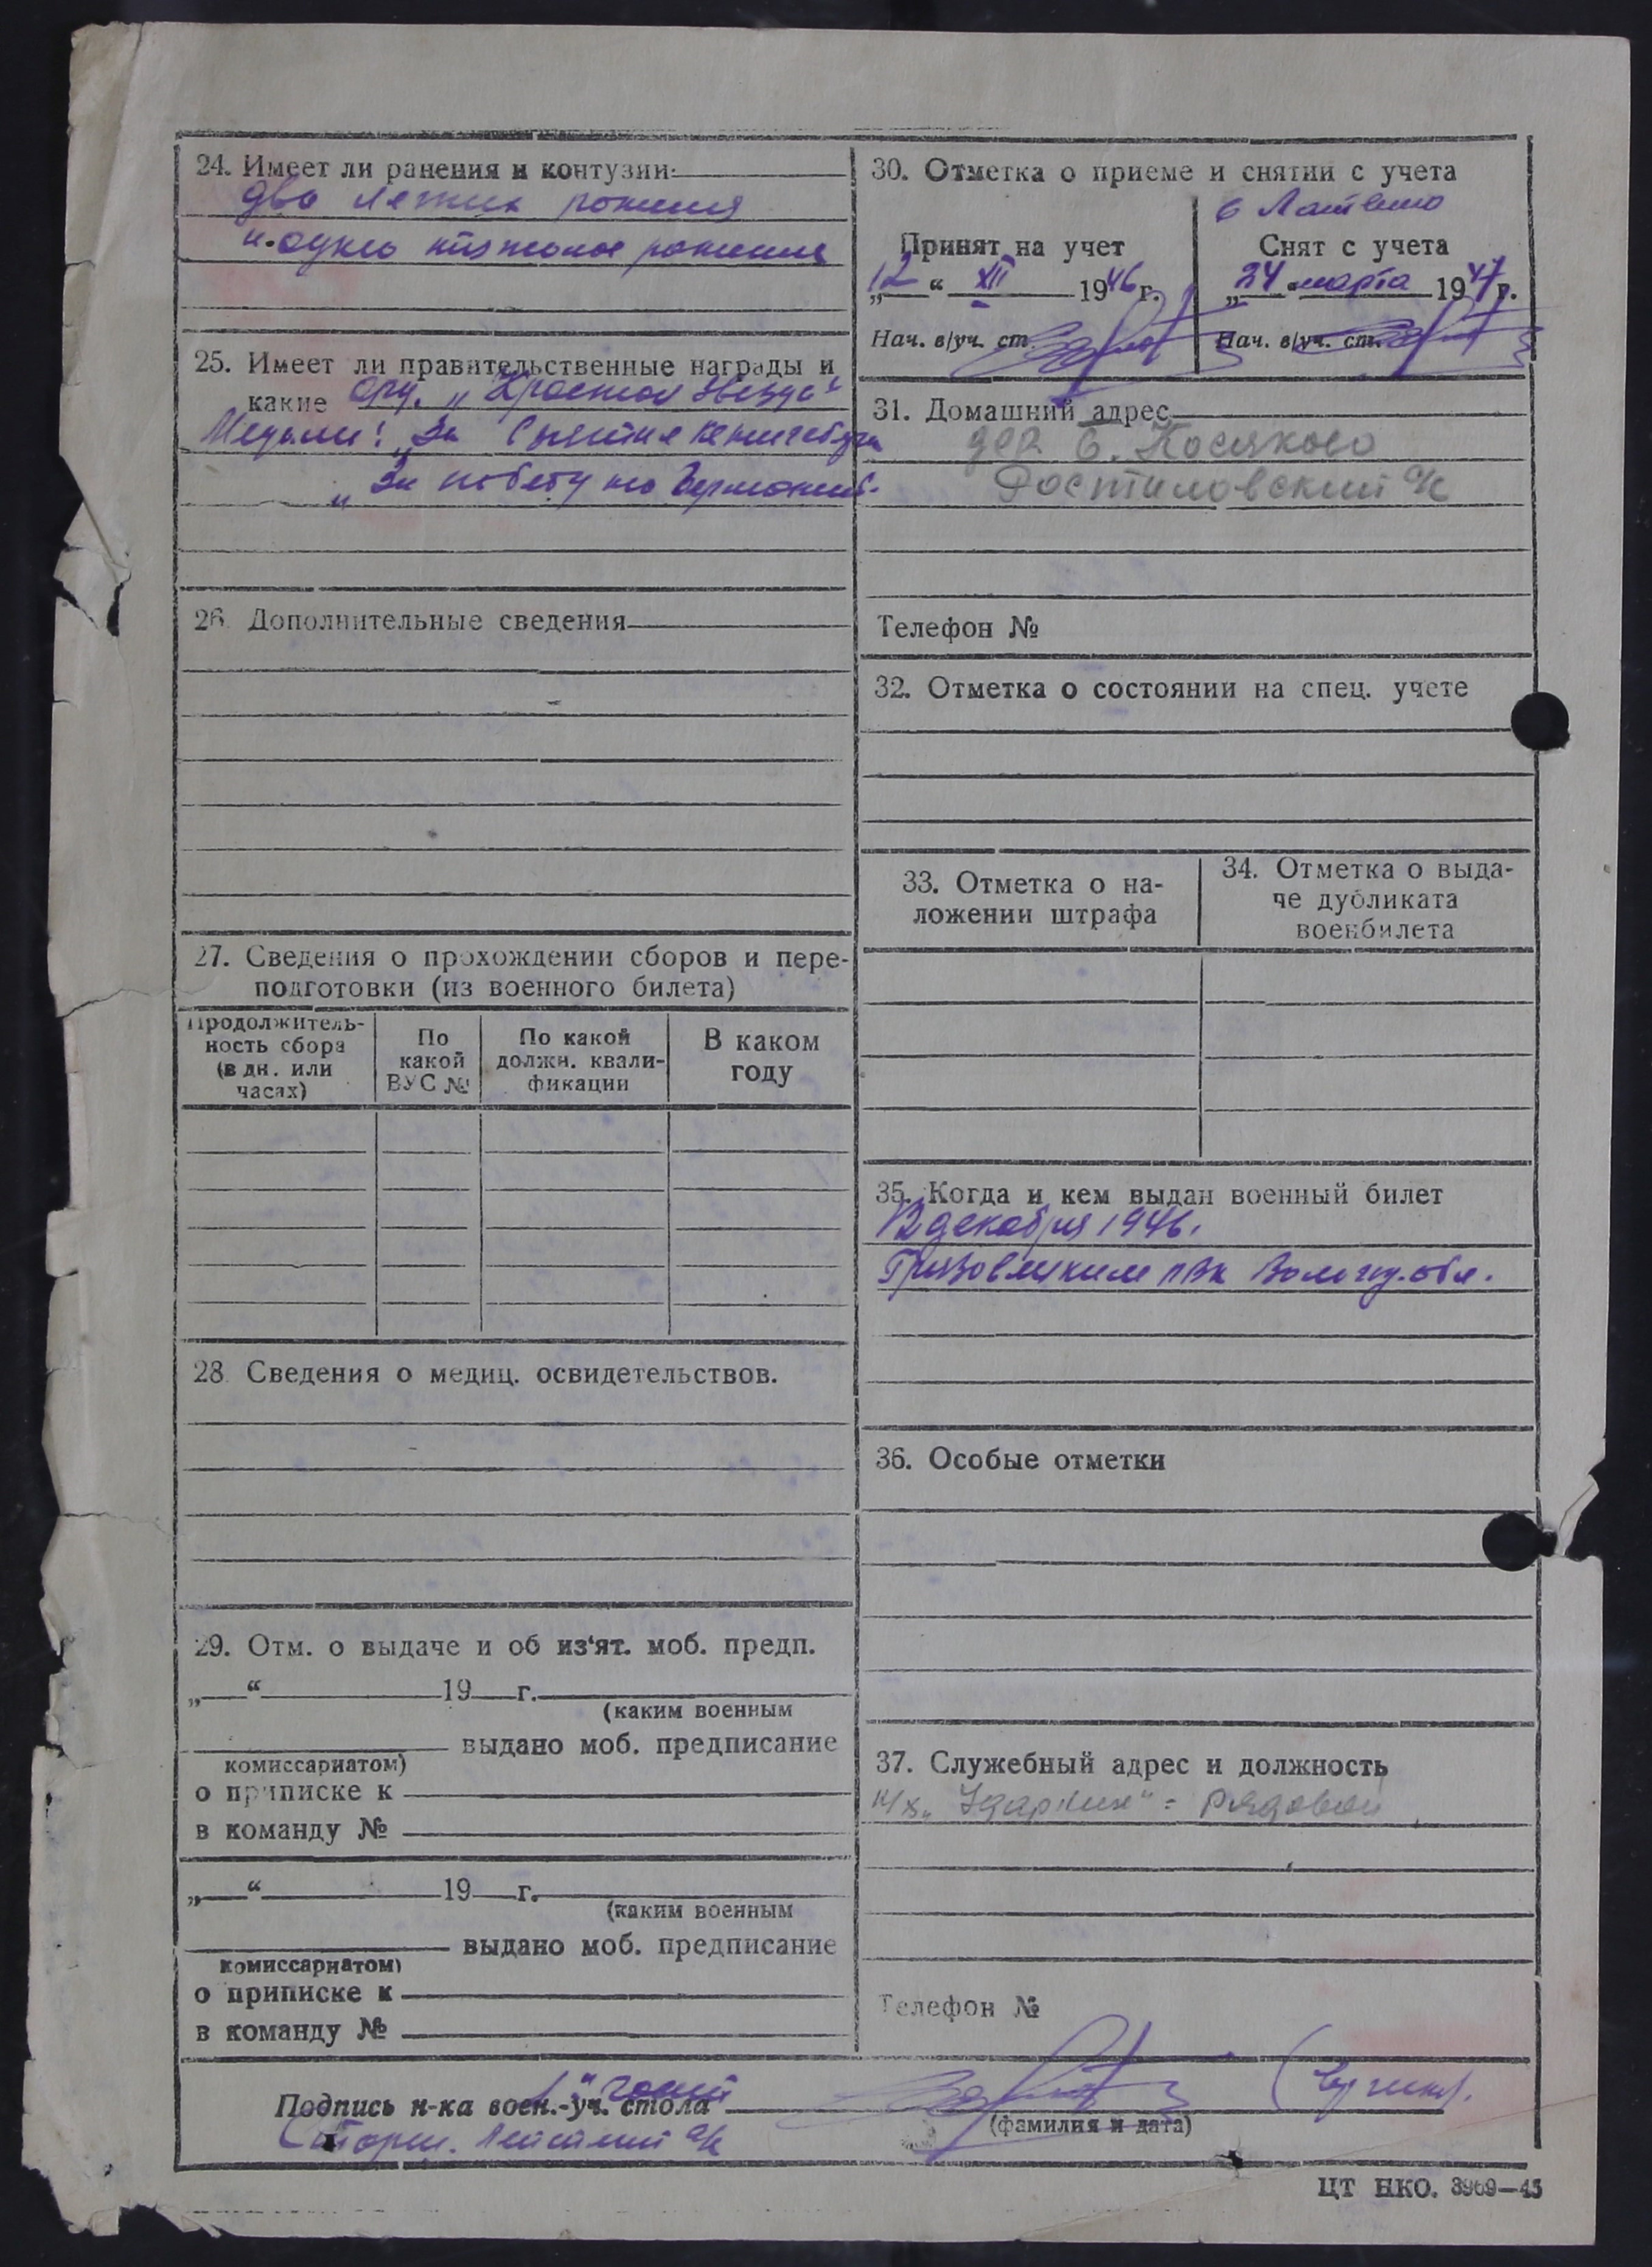 24. Имеет ли ранения и контузии:
два легких ранения
и одно тяжолое ранение
25. Имеет ли правительственные награды и
какие орд. „Красная звезда“
Медали: „За взятие кенигсберга
„За победу над Германией.
26. Дополнительные сведения
27. Сведения о прохождении сборов и пере-
подготовки (из военного билета)
Продолжитель-
ность сбора
(в дн. или
часах)
По
какой
ВУС №
По какой
должн. квали-
фикации
В каком
году
28. Сведения о медиц. освидетельствов.
29. Отм. о выдаче и об из'ят. моб. предп.
„ “ 19 г.
(каким военным
выдано моб. предписание
комиссариатом)
о приписке к
в команду №
„ “ 19 г.
(каким военным
выдано моб. предписание
комиссариатом)
о приписке к
в команду №
30. Отметка о приеме и снятии с учета
Принят на учет
„12“ XII 1946 г.
Нач. в/уч. ст.
в
Снят с учета
„24“ марта 1947 г.
Нач. в/уч. ст.
31. Домашний адрес
дер Б. Косиково
Ростиловский с/с
Телефон №
32. Отметка о состоянии на спец. учете
33. Отметка о на-
ложении штрафа
34. Отметка о выда-
че дубликата
военбилета
35. Когда и кем выдан военный билет
12 декабря 1946.
Грязовецким РВК Вологод. обл.
36. Особые отметки
37. Служебный адрес и должность
к/х „Ударник“ - рядовой
Телефон №
Подпись н-ка воен.-уч. стола
(фамилия и дата)
ЦТ НКО. 3969—45